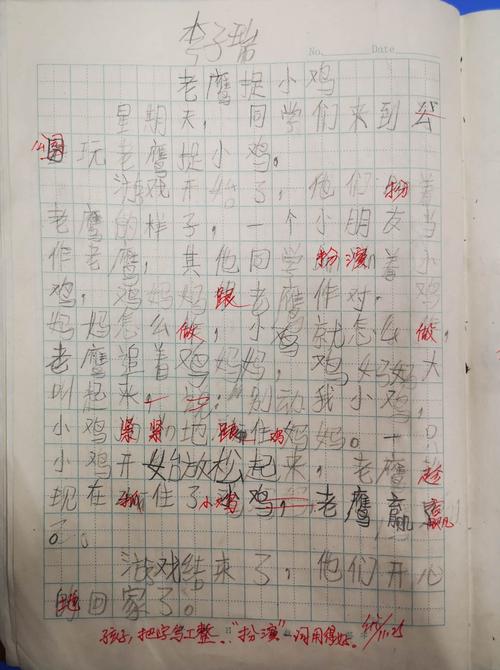 李子瑞
No. Date
老鹰捉小鸡
星期天,同学们来到公
公园玩老鹰捉小鸡。
游戏开始了,他们扮着
老鹰的样子,一个小朋友当
作老鹰,其他同学扮演着小
鸡,鸡妈妈跟老鹰作对。鸡
妈妈怎么做,小鸡就怎么做,
老鹰追着鸡妈妈,鸡妈妈大
叫起来,别动我小鸡,
小鸡紧紧地跟住鸡妈妈。一只
小鸡开始放松起来,老鹰趁
现在抓住了小鸡,老鹰赢
了。
游戏结束了,他们开心
地回家了。
孩子,把字写工整。“扮演”一词用得好。